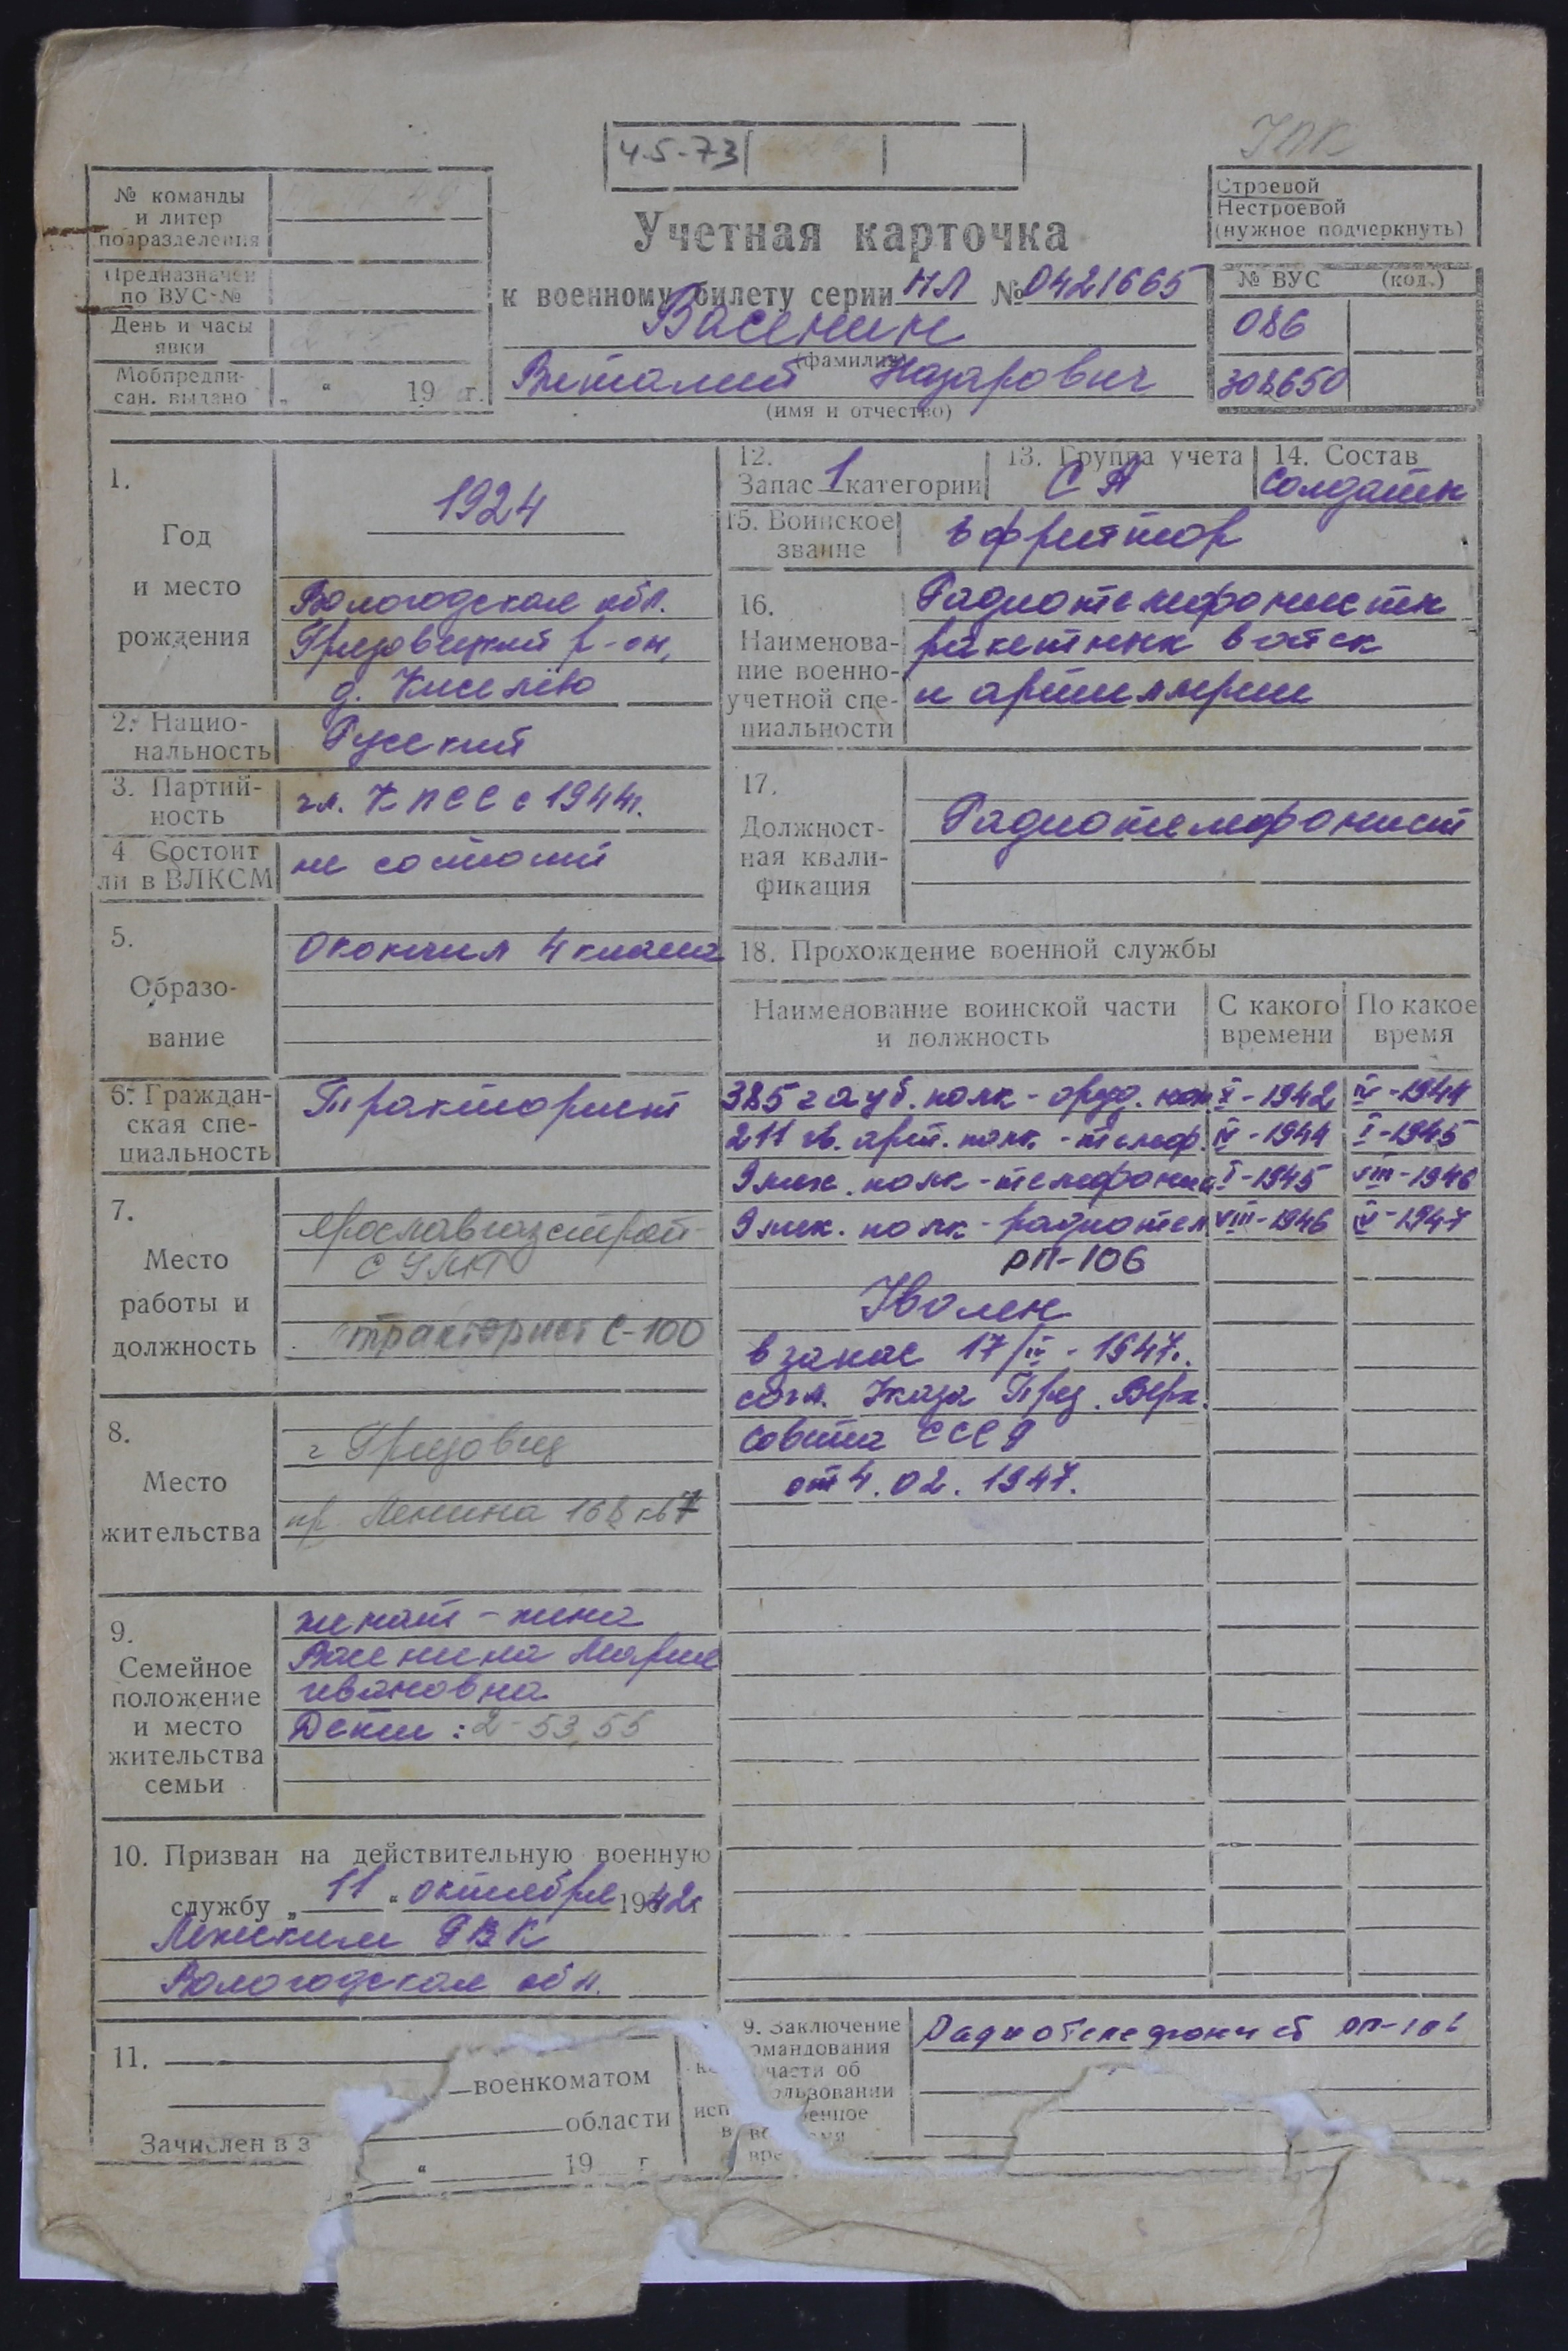 УПК
4-5-73
№ команды
и литер
подразделения
Предназначен
по ВУС-№
День и часы
явки
Мобпредпи-
сан. выдано „ “ 19 г.
Строевой
Нестроевой
(нужное подчеркнуть)
Учетная карточка
к военному билету серии НЛ № 0421665
Васенин
(фамилия)
Виталий Назарович
(имя и отчество)
№ ВУС (код.)
086
308650
1.
Год
и место
рождения
1924
Вологодская обл.
Грязовецкий р-он,
д. Киселёво
2. Нацио-
нальность
Русский
3. Партий-
ность
чл. КПСС с 1944г.
4 Состоит
ли в ВЛКСМ
не состоит
5.
Образо-
вание
Окончил 4 класса
6. Граждан-
ская спе-
циальность
Тракторист
7.
Место
работы и
должность
Ярославгазстрой-
тракторист С-100
8.
Место
жительства
г Грязовец
пр. Ленина 168 кв 7
9.
Семейное
положение
и место
жительства
семьи
женат - жена
Васенина Мария
ивановна
Дети : 2 - 53, 55
10. Призван на действительную военную
службу „ 11 “ октября 1942г
Лежским РВК
Вологодской обл.
11.
военкоматом
области
Зачислен в з
“ 19 г
12.
Запас 1 категории
13. Группа учета
СА
14. Состав
Солдаты
15. Воинское
звание
Ефрейтор
16.
Наименова-
ние военно-
учетной спе-
циальности
Радиотелефонисты
ракетных войск
и артиллерии
17.
Должност-
ная квали-
фикация
Радиотелефонист
18. Прохождение военной службы
Наименование воинской части
и должность
С какого
времени
По какое
время
385 гауб. полк - оруд. ном X - 1942 IV - 1944
211 гв. арт. полк. - телеф. IV - 1944 I - 1945
9 мех. полк - телефонис I - 1945 VIII - 1946
9 мех. полк - радиотел VIII - 1946 IV - 1947
РП-106
Уволен
в запас 17/IV - 1947г.
согл. Указа През. Верх.
Совета СССР
от 4. 02. 1947.
9. Заключение
омандования
части об
ользовании
енное
Радиотелефонист РП-106